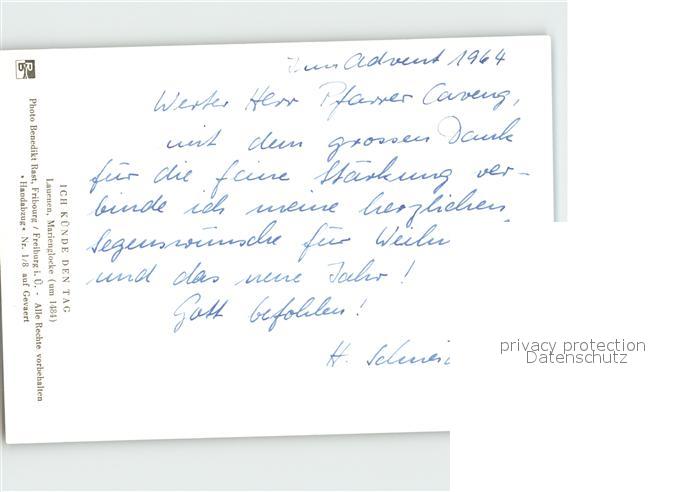 Zum Advent 1964
Werter Herr Pfarrer Caveng,
mit dem grossen Dank
für die feine Stärkung ver-
binde ich meine herzlichen
Segenswünsche für Weihn
und das neue Jahr!
Gott befohlen!
H. Schnei
ICH KÜNDE DEN TAG
Lauenen, Marienglocke (um 1484)
Photo Benedikt Rast, Fribourg / Freiburg i. Ü. - Alle Rechte vorbehalten
• Handabzug • Nr. 1/8 auf Gevaert
privacy protection
Datenschutz